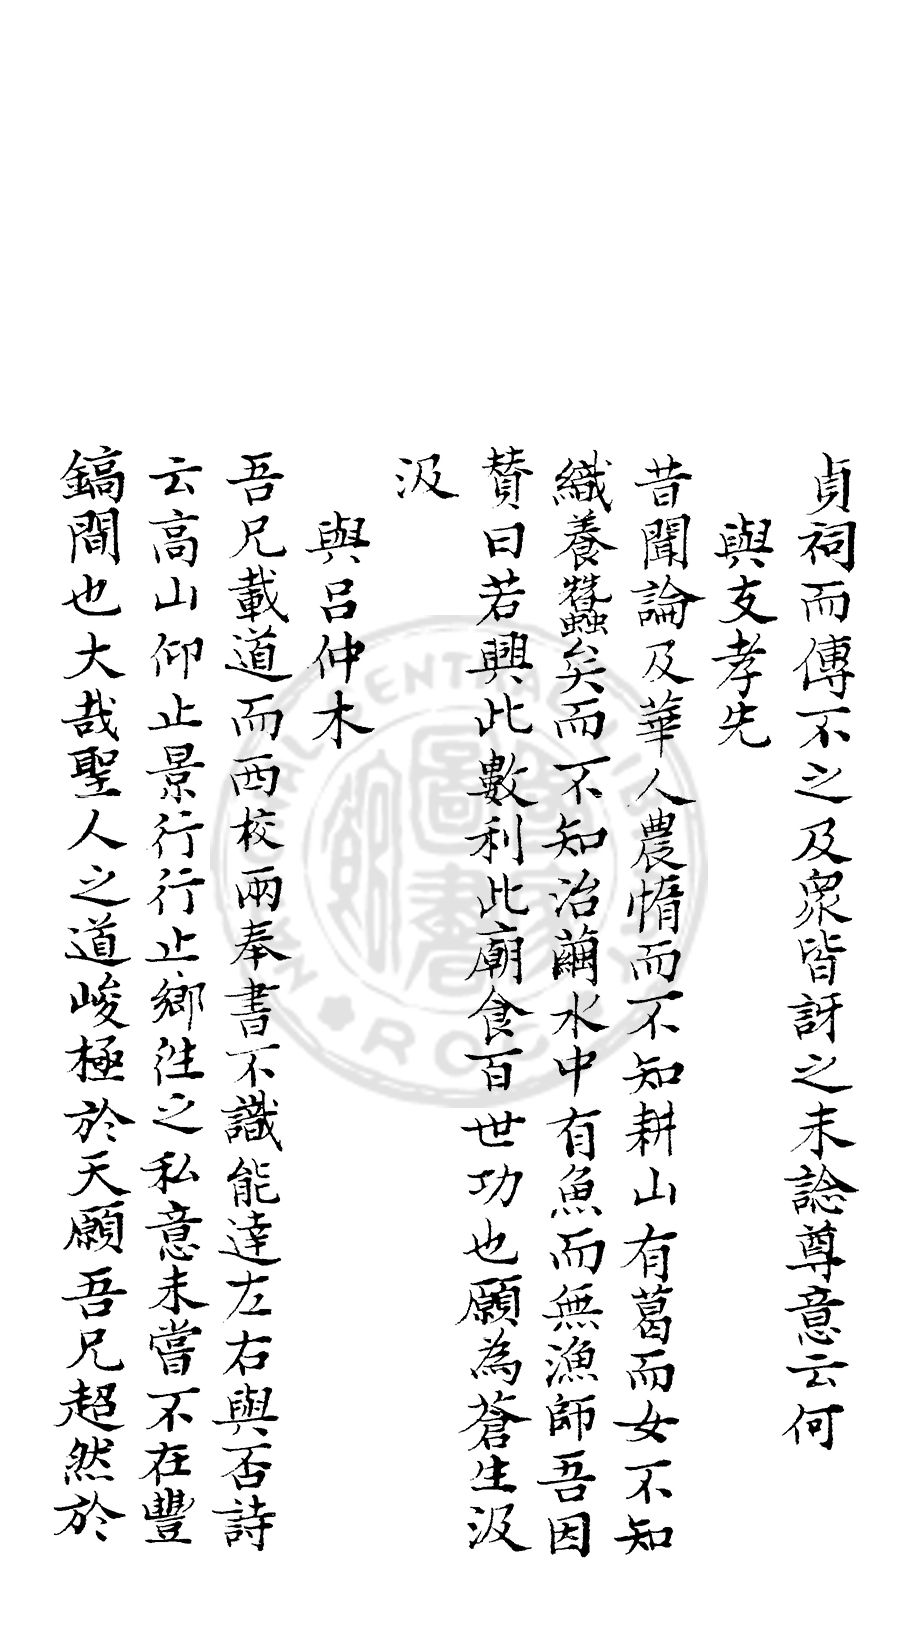 貞祠而傳不之及衆皆訝之未諗尊意云何
與支孝先
昔聞論及華人農惰而不知耕山有葛而女不知
織養蠶矣而不知治繭水中有魚而無漁師吾因
賛曰若興此數利此廟食百世功也願為蒼生汲
汲
與呂仲木
吾兄載道而西校兩奉書不識能達左右與否詩
云高山仰止景行行止鄉徃之私意未嘗不在豐
鎬間也大哉聖人之道峻極於天願吾兄超然於